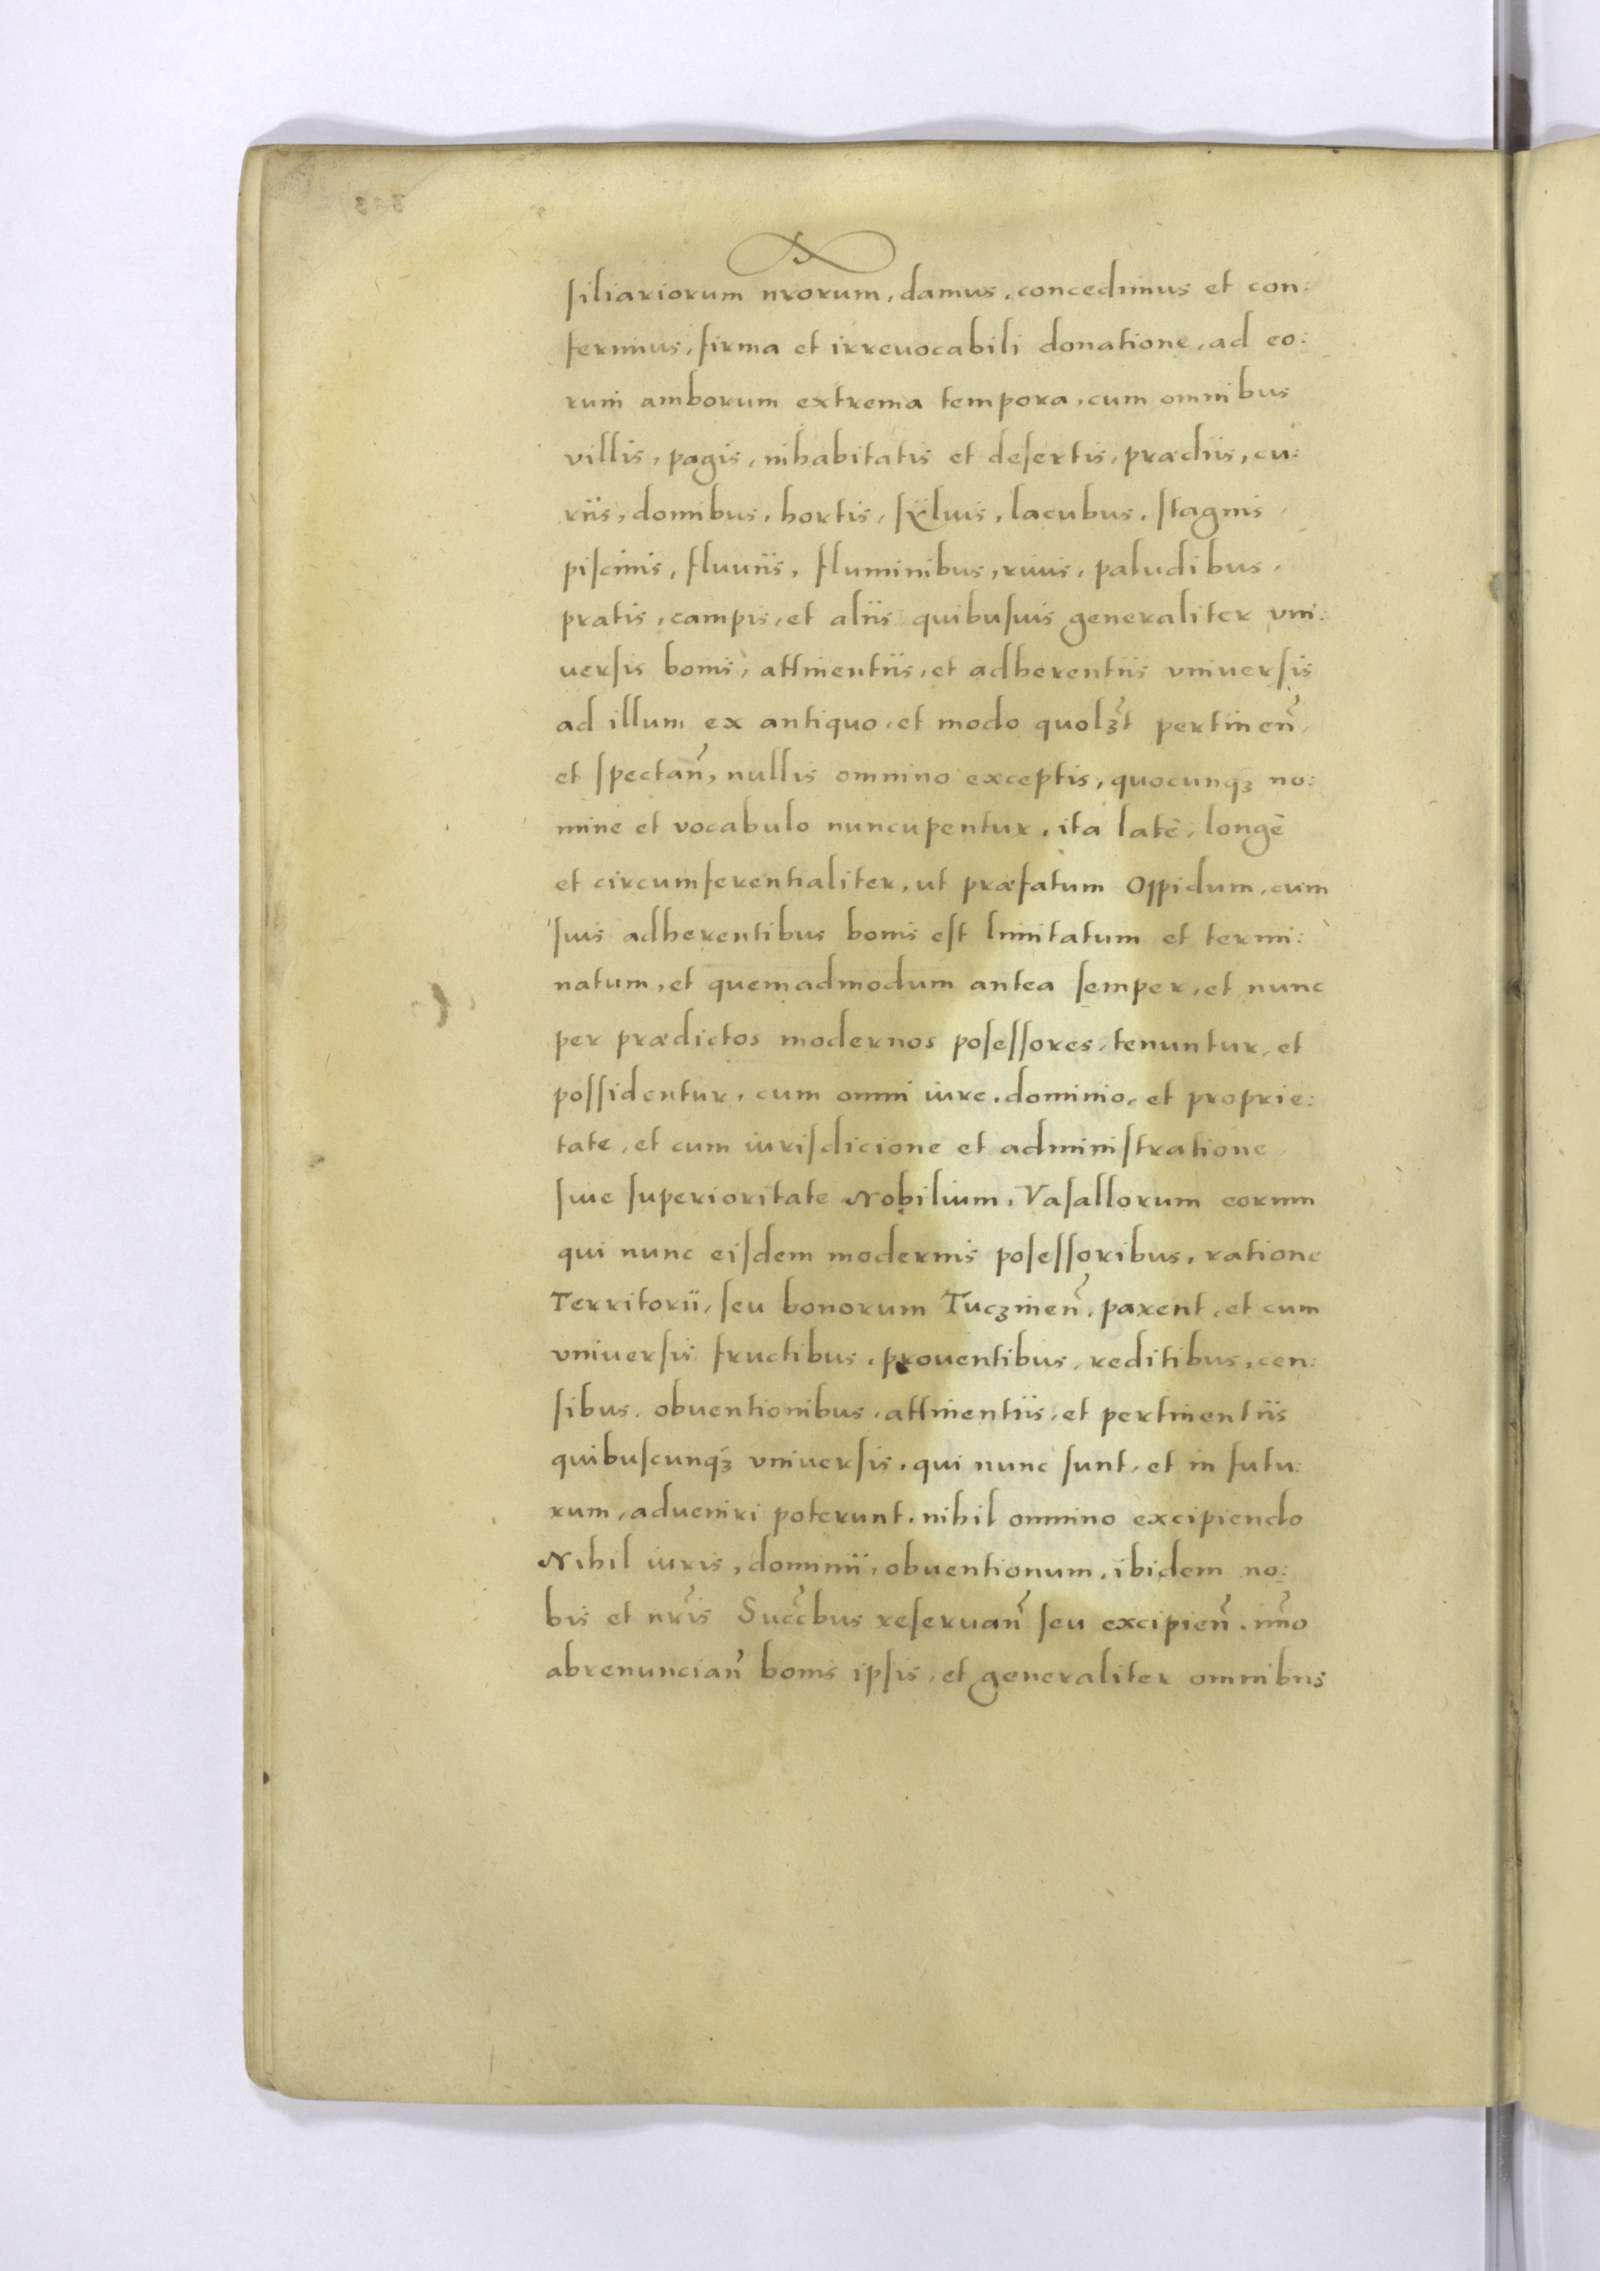 ſiliariorum nr̃orum, damus, concedimus et con:
ferimus, firma et irreuocabili donatione, ad eo:
rum amborum extrema tempora, cum omnibus
villis, pagis, inhabitatis et deſertis, prædiis, cu:
riis, domibus, hortis, ſÿluis, lacubus, ſtagnis,
piſcinis, fluuiis, fluminibus, riuis, paludibus,
pratis, campis, et aliis quibuſuis generaliter vni:
uerſis bonis, attinentiis, et adherentiis vniuerſis
ad illum ex antiquo, et modo quolꝫt pertinen̄,
et ſpectan̄, nullis omnino exceptis, quocunqꝫ no:
mine et vocabulo nuncupentur, ita latè, longè
et circumferentialiter, ut præfatum Oppidum, cum
ſuis adherentibus bonis eſt limitatum et termi:
natum, et quemadmodum antea ſemper, et nunc
per prædictos modernos poſeſſores, tenuntur, et
poſſidentur, cum omni iure, dominio, et proprie:
tate, et cum iuriſdicione et adminiſtratione,
ſiue ſuperioritate Nobilium, Vaſallorum eorum
qui nunc eiſdem modernis poſeſſoribus, ratione
Territorii, ſeu bonorum Tuczinen̄, parent, et cum
vniuerſis fructibus, prouentibus, reditibus, cen:
ſibus, obuentionibus, attinentiis, et pertinentiis
quibuſcunqꝫ vniuerſis, qui nunc ſunt, et in futu:
rum, adueniri poterunt, nihil omnino excipiendo
Nihil iuris, dominii, obuentionum, ibidem no:
bis et nr̃is Succ̃bus reſeruan̄ ſeu excipien̄, im̃o
abrenuncian̄ bonis ipſis, et generaliter omnibus